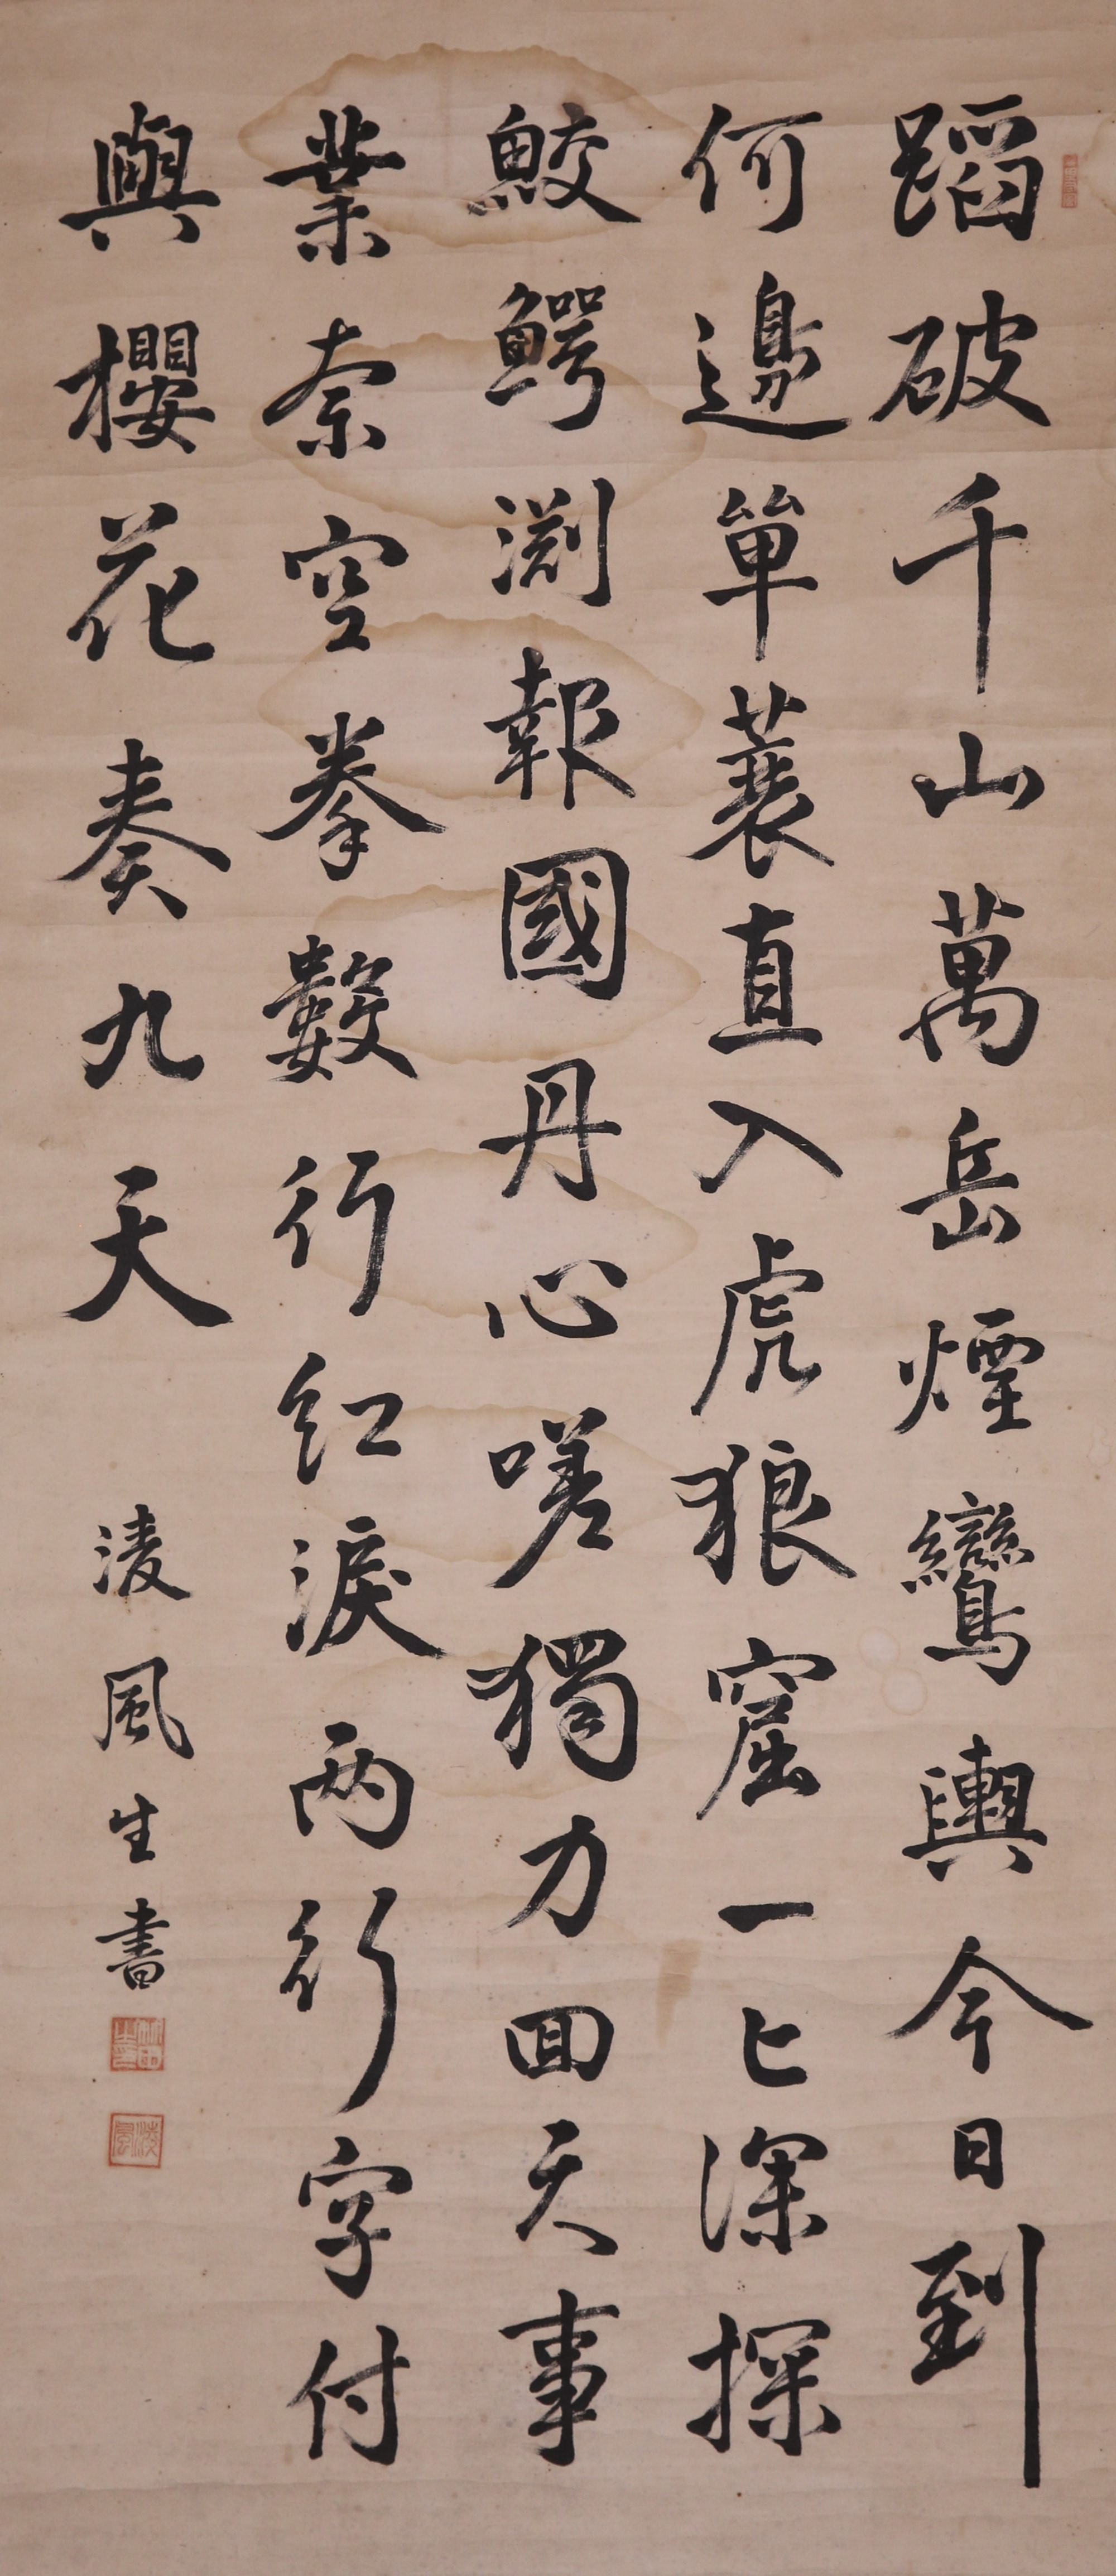 蹈破千山萬岳煙鸞輿今日到
何邊箪蓑直入虎狼窟一匕深探
鮫鰐淵報國丹心嗟獨力回天事
業奈空拳數行紅淚兩行字付
與櫻花奏九天
淩風生書